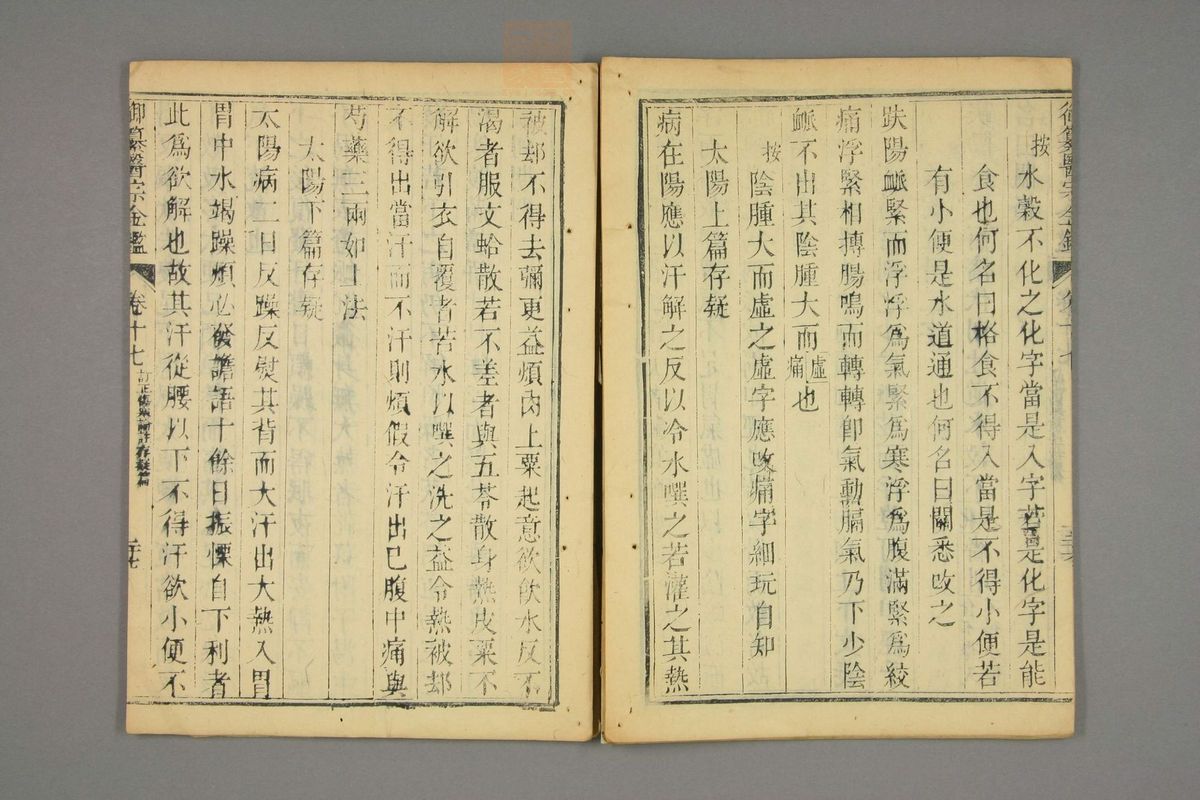 御纂醫宗金鑑
按水穀不化之化字當是入字若是化字是能
食也何名曰格食不得入當是不得小便若
有小便是水道通也何名曰關悉改之
趺陽脈緊而浮浮爲氣緊爲寒浮爲腹滿緊爲絞
痛浮緊相摶腸鳴而轉轉卽氣動膈氣乃下少陰
脈不出其陰腫大而虛痛也
按陰腫大而虛之虛字應改痛字細玩自知
太陽上篇存疑
病在陽應以汗解之反以冷水噀之若灌之其熱
被却不得去彌更益煩肉上粟起意欲飲水反不
渴者服文蛤散若不差者與五苓散身熱皮粟不
解欲引衣自覆者若水以噀之洗之益令熱被却
不得出當汗而不汗則煩假令汗出已腹中痛與
芍藥三兩如上法
太陽下篇存疑
太陽病二日反躁反熨其背而大汗出大熱入胃
胃中水竭躁煩必發譫語十餘日振慄自下利者
此爲欲解也故其汗從腰以下不得汗欲小便不
御纂醫宗金鑑 卷十七 訂正傷寒論註存疑篇